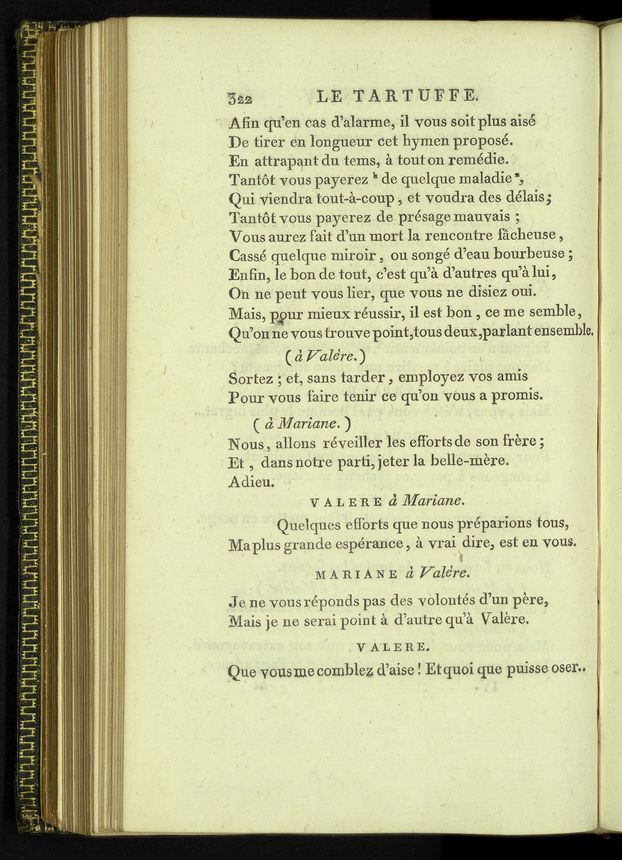 322 LE TARTUFFE.
Afin qu'en cas d'alarme, il vous soit plus aisé
De tirer en longueur cet hymen proposé.
En attrapant du tems, à tout on remédie.
Tantôt vous payerez " de quelque maladie ",
Qui viendra tout-à-coup, et voudra des délais;
Tantôt vous payerez de présage mauvais ;
Vous aurez fait d'un mort la rencontre fâcheuse,
Cassé quelque miroir, ou songé d'eau bourbeuse ;
Enfin, le bon de tout, c'est qu'à d'autres qu'à lui,
On ne peut vous lier, que vous ne disiez oui.
Mais, pour mieux réussir, il est bon, ce me semble,
Qu'on ne vous trouve point, tous deux, parlant ensemble.
( à Valère. )
Sortez ; et, sans tarder, employez vos amis
Pour vous faire tenir ce qu'on vous a promis.
( à Mariane. )
Nous, allons réveiller les efforts de son frère ;
Et, dans notre parti, jeter la belle-mère.
Adieu.
VALERE à Mariane.
Quelques efforts que nous préparions tous,
Ma plus grande espérance, à vrai dire, est en vous.
MARIANE à Valère.
Je ne vous réponds pas des volontés d'un père,
Mais je ne serai point à d'autre qu'à Valère.
VALERE.
Que vous me comblez d'aise ! Et quoi que puisse oser..